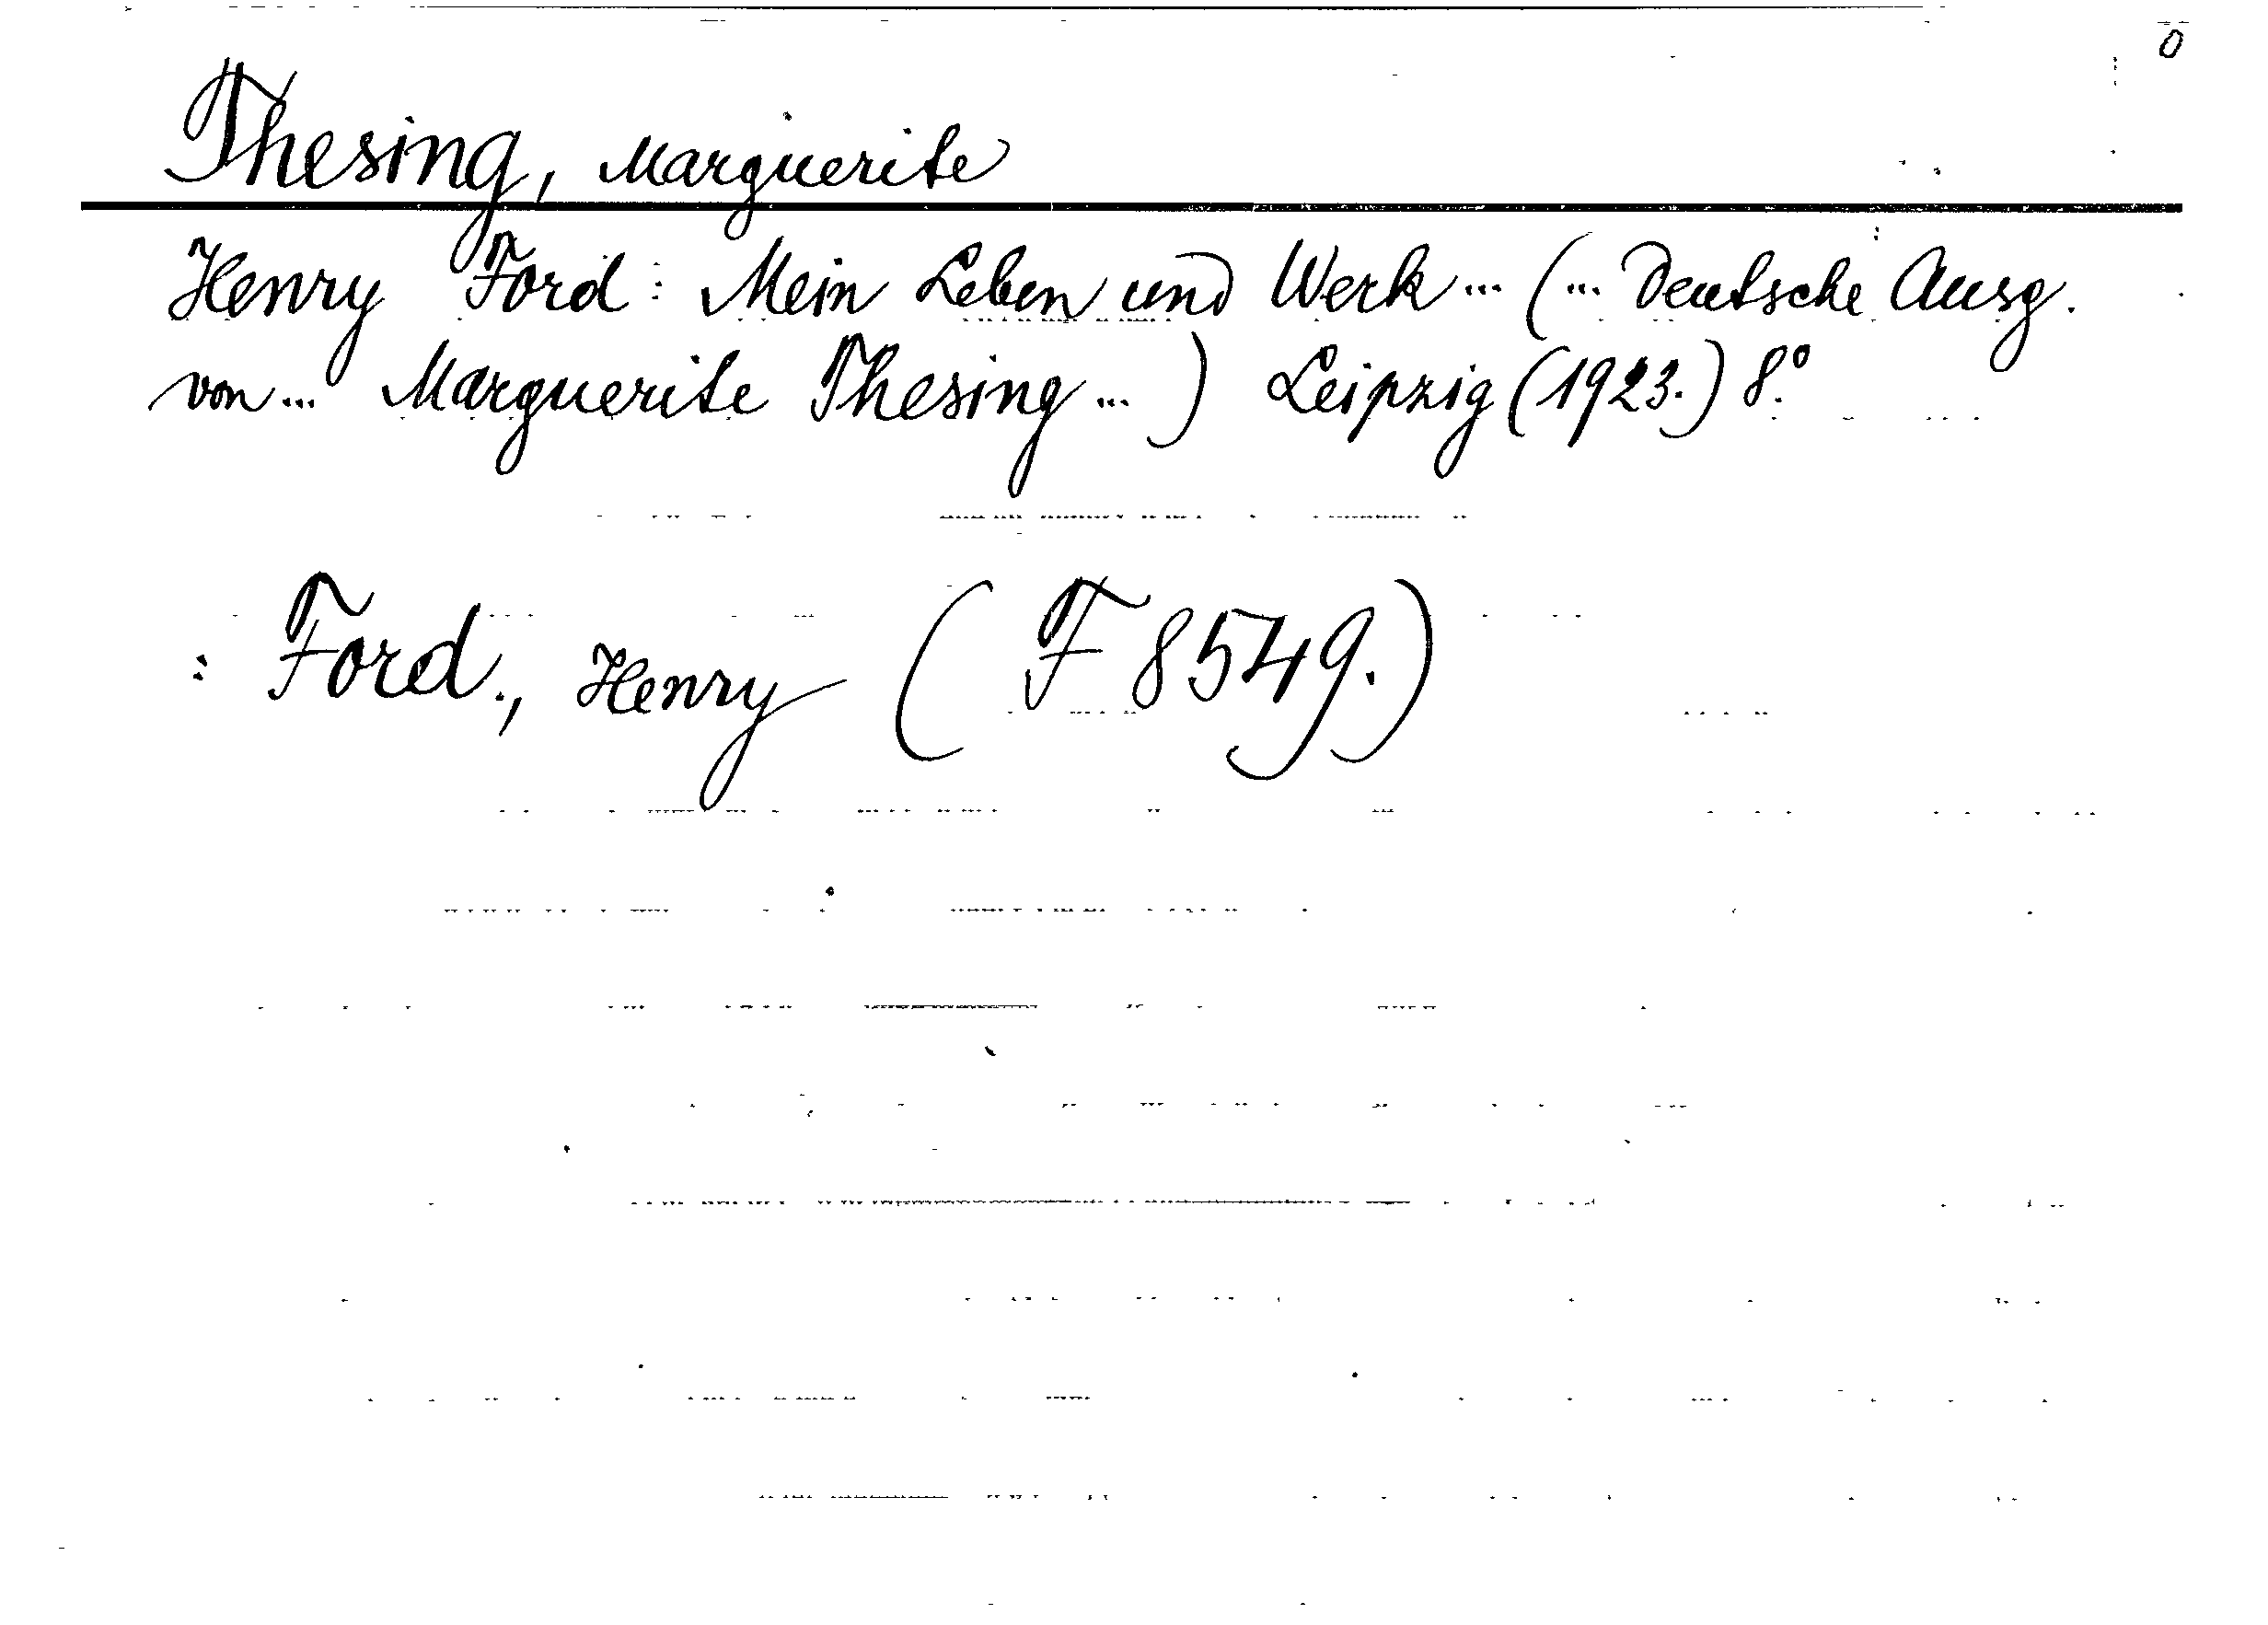 0
Thesing, Marguerite
Henry Ford: Mein Leben und Werk ... (... Deutsche Ausg.
von ... Marguerite Thesing ...) Leipzig (1923.) 8°.
: Ford., Henry (F 8549.)